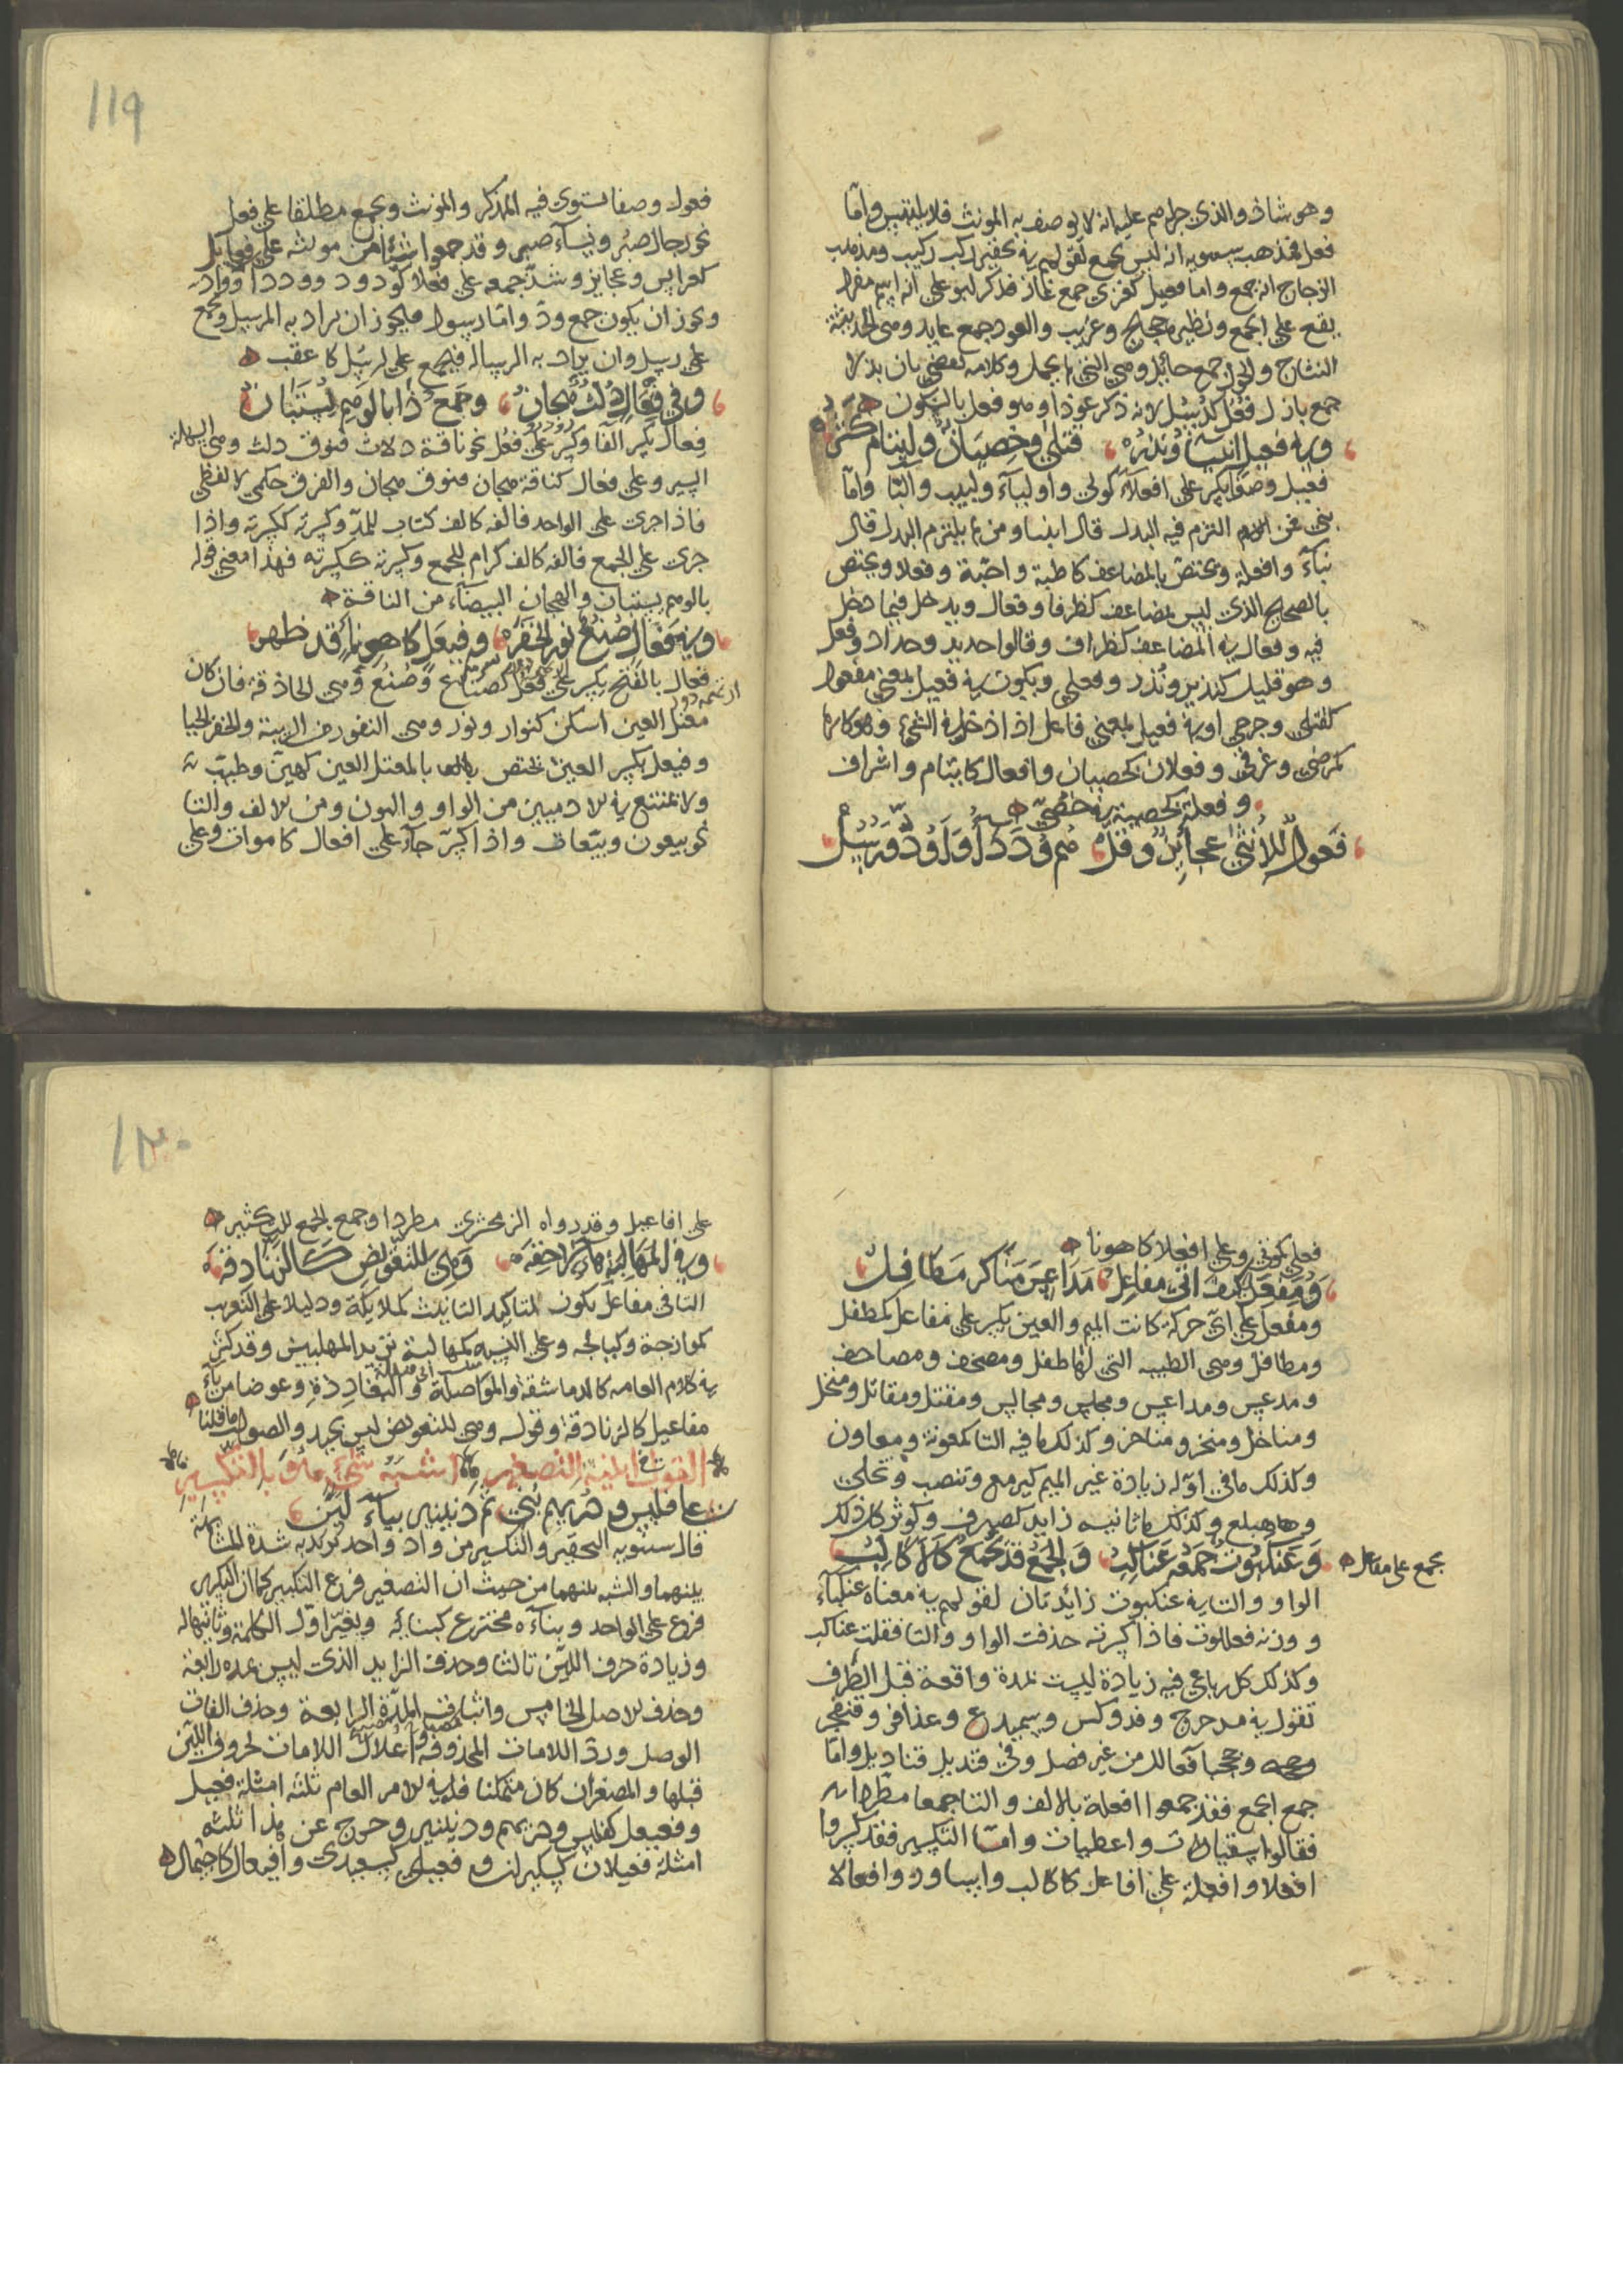 وهو شاذ والذي جراهم عليه انه لا يوصف به المونث فلا يلتبس واما
فعل فمذهب سيبويه انه ليس بجمع لقولهم في تحقير ركب ركيب ومذهب
الزجاج انه جمع واما فعيل كغزي جمع غاز فذكر ابو علي انه اسم مفرد
يقع على الجمع ونظيره حجيج وعزيب والعوذ جمع عايذ وهي الحديثة
النتاج والحول جمع حائل وهي التي لم تحمل وكلامه يقضي بان بزلا
جمع بازل فعل كرسل لانه ذكر عوذا وهو فعل بالسكون
وفي فعيل انبيا ونذره قتلى وخصيان وايتام كثره
فعيل وصفا يكسر على افعلاء كولي واولياء ولبيب والبا واما
نبي فمن التزم فيه البدل قال انبيا ومن لم يلتزم البدل قال
نباء وافعلة ويختص بالمضاعف كاطبة واحبة وفعلا ويختص
بالصحيح الذي ليس بمضاعف كظرفا وفعال ويدخل فيما دخل
فيه وفعال في المضاعف كظراف وقالوا حديد وحداد وفعل
وهو قليل كنذير ونذر وفعلى ويكون في فعيل بمعنى مفعول
كقتلى وجرحى او في فعيل بمعنى فاعل اذا دخل في الشيء وهو كاره
كمرضى وغرقى وفعلان كخصيان وافعال كايتام واشراف
وفعلة كخصية في خصي
فعول للانثى عجائز وقل هم وددا ولود ورسل
119
فعول وصفا يستوي فيه المذكر والمونث ويجمع مطلقا على فعل
نحو رجال صبر ونساء صبر وقد جمعوا شيئا من مونثه على فعايل
كعرايس وعجايز وشذ جمعه على فعلا كودود ووددا
ويجوز ان يكون جمع ود واما رسول فيجوز ان يراد به المرسل ويجمع
على رسل وان يراد به الرساله فيجمع على ارسل كاعقب
وفي فعال دلث هجان وجمع ذا بالوهم يستبان
فعال بكسر الفا وكسر على فعل نحو ناقة دلاث فنوق دلث وهي السهلة
السير وعلى فعال كناقة هجان فنوق هجان والفرق حكمي لا لفظي
فاذا جرى على الواحد فالفه كالف كتاب للمد وكسرته ككسرته واذا
جرى على الجمع فالفه كالف كرام للجمع وكسرته ككسرته فهذا معنى قوله
بالوهم يستبان والهجان البيضاء من الناقة
وفي فعال صنع نور الخفره وفيعل كاهوناء قد ظهر
فعال بالفتح يكسر على فعل كصناع وصنع وهي الحاذقة فان كان
معتل العين اسكن كنوار ونور وهي النفور من الريبة والخفر الحيا
وفيعل بكسر العين تختص بالمعتل العين كهين وطيب
ولا تمتنع في الادميين من الواو والنون ومن الالف والتا
نحو بيعون وبيعات واذا كسر جاء على افعال كاموات وعلى
فعلى كموتى وعلى افعلا كاهونا
ومفعل كيف اتى مفاعل مداعس مناكر مطافل
ومفعل على اي حركة كانت الميم والعين يكسر على مفاعل كمطفل
ومطافل وهي الظبيه التي لها طفل ومصحف ومصاحف
ومدعس ومداعس ومجلس ومجالس ومقتل ومقاتل ومنخل
ومناخل ومنخر ومناخر وكذلك ما فيه التا كمعونة ومعاون
وكذلك ما في اوله زيادة غير الميم كيرمع وتنصب وتحلى
وهاهبلع وكذلك ما ثانيه زايد كصيرف وكوثر كل ذلك
يجمع على مفاعل
وعنكبوت جمعه عناكب والجمع قد يجمع كالاكالب
الواو والتا في عنكبوت زائدتان لقولهم في معناه عنكباء
ووزنه فعللوت فاذا كسرته حذفت الواو والتا فقلت عناكب
وكذلك كل رباعي فيه زيادة ليست بمدة واقعة قبل الطرف
تقول في مدحرج وفدوكس وسميدع وعذافر وقنفخر
من غير فصل وفي قنديل قناديل واما
جمع الجمع فقد جمعوا افعلة بالالف والتا جمعا مطردا
فقالوا اسقيات واعطيات واما التكسير فقد كسروا
افعلا وافعلة على افاعل كاكالب واساور وافعالا
١٢٠
على افاعيل وقد رواه الزمخشري مطردا وجمع الجمع للتكثير
وفي المهالبة ملاحفه وهي للتعويض كالزنادقه
التا في مفاعل تكون لتاكيد التانيث كملايكة ودليلا على التعرب
كموازجة وكيالجه وعلى النسبه كمهالبة تريد المهلبين وقد كثر
في كلام العامه كالدماشقة والمواصلة والبغاددة وعوضا من ياء
مفاعيل كالزنادقة وقوله وهي للتعويض ليس بجيد والصواب ما قلنا
القول في ابنية التصغير ما اشبه شيء هو بالتكسير
عافليس وهريهم بني ثم دنينير بياء لين
قال سيبويه التحقير والتكسير من واد واحد يريد به شدة المشاكلة
بينهما والشبه بينهما من حيث ان التصغير فرع التكبير كما ان التكسير
فرع على الواحد وبناءه مخترع كبنايه ويغير اول الكلمة وثانيها له
وزيادة حرف اللين ثالثا وحذف الزايد الذي ليس بمده رابعة
وحذف الاصل الخامس واثبات المدة الرابعة وحذف الفات
الوصل ورد اللامات المحذوفة واعلال اللامات لحروف اللين
قبلها والمصغر ان كان متمكنا فله في الامر العام ثلثه امثلة فعيل
وفعيعل كفليس وهريهم ودنينير وخرج عن هذا ثلثه
امثلة فعيلان كسكيران وفعيلى كسعيدى وافيعال كاجيمال